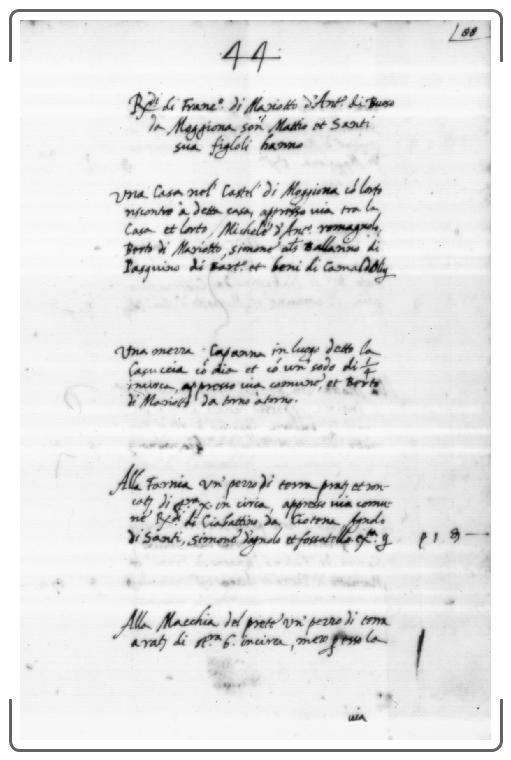 88
44
Rdi di Franc.o di Mariotto d'Ant.o di Buoso
da Moggiona son Mattio et Santi
sua figloli hanno
Una Casa nel Castel di Moggiona co lorto
riscontro à detta casa, appresso via tra la
Casa et lorto, Michele d'Ant.o romagnolo,
Berto di Mariotto, simone als Ballanno di
Pasquino di Bart.o et beni di Camaldoli
Una mezza Capanna in luogo detto la
Casuccia co dia et co un sodo di 1/4
incirca, appresso via comune, et Berto
di Mariotto da torno àtorno.
Alla Farnia Un' pezzo di terra et ron-
di x. in circa, appresso via comu-
ne Rdi di Ciabattino da
di Santi, simone d'agnolo et fossatello
p 1. 8
Alla Macchia del prete un' pezzo di terra
di 6. incirca, la
via